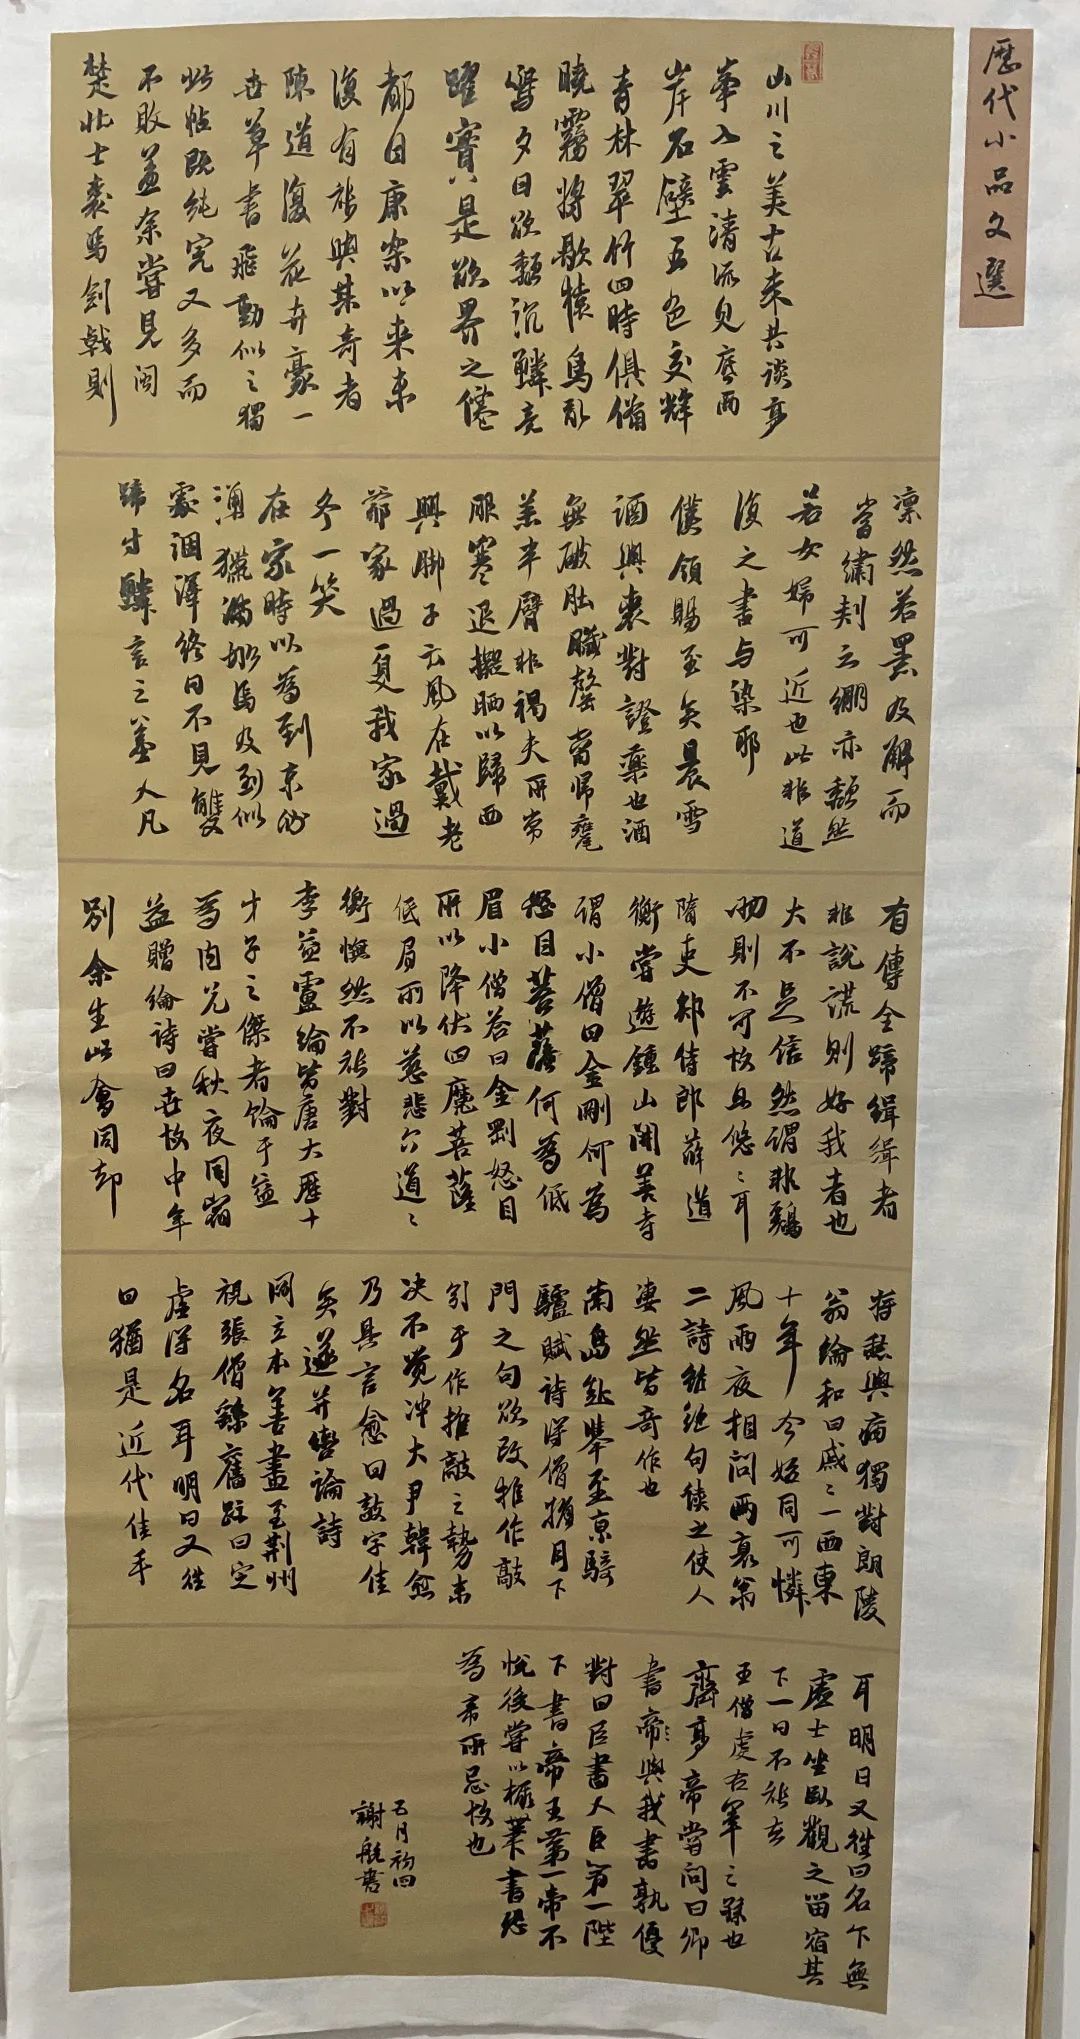 歷代小品文選
山川之美古來共談高
峯入雲清流見底兩
岸石壁五色交輝
青林翠竹四時俱備
曉霧將歇猿鳥亂
鳴夕日欲頹沉鱗競
躍實是欲界之僊
都自康樂以來未
復有能與其奇者
陳道復花卉豪一
世草書飛動似之獨
此帖既純完又多而
不敗蓋余嘗見閩
楚壯士裘馬劍戟則
凜然若羆及解而
當繡刺之繃亦頹然
若女婦可近也此非道
復之書与染耶
僕領賜至矣晨雪
酒與裘對證藥也酒
無破肚臟罄當歸甕
羔半臂非褐夫所常
服寒退擬晒以歸西
興脚子云風在戴老
爺家過夏我家過
冬一笑
在家時以為到京必
漁獵滿船馬及到似
處涸澤終日不見隻
蹄寸鱗言之羞人凡
有傳全蹄緝緝者
非說謊則好我者也
大不足信然謂非鷄
肋則不可故且悠〻耳
隋吏部侍郎薛道
衡嘗遊鍾山開善寺
謂小僧曰金剛何為
怒目菩薩何為低
眉小僧答曰金剛怒目
所以降伏四魔菩薩
低眉所以慈悲六道〻
衡憮然不能對
李益盧綸皆唐大歷十
才子之傑者綸于益
為內兄嘗秋夜同宿
益贈綸詩曰世故中年
別余生此會同却
將愁與病獨對朗陵
翁綸和曰戚〻一西東
十年今始同可憐
風雨夜相問兩衰翁
二詩雖絕句讀之使人
凄然皆奇作也
島赴舉至京騎
驢賦詩得僧推月下
門之句欲改推作敲
引手作推敲之勢未
決不覺冲大尹韓愈
乃具言愈曰敲字佳
矣遂并轡論詩
閻立本善畫至荆州
視張僧繇舊跡曰定
虛得名耳明日又往
曰猶是近代佳手
耳明日又往曰名下無
虛士坐臥觀之留宿其
下一日不能去
王僧虔右軍之孫也
齊高帝嘗問曰卿
書帝〻與我書孰優
對曰臣書人臣第一陛
下書帝王第一帝不
悅後嘗以橛筆書恐
為帝所忌故也
五月初四
謝航書